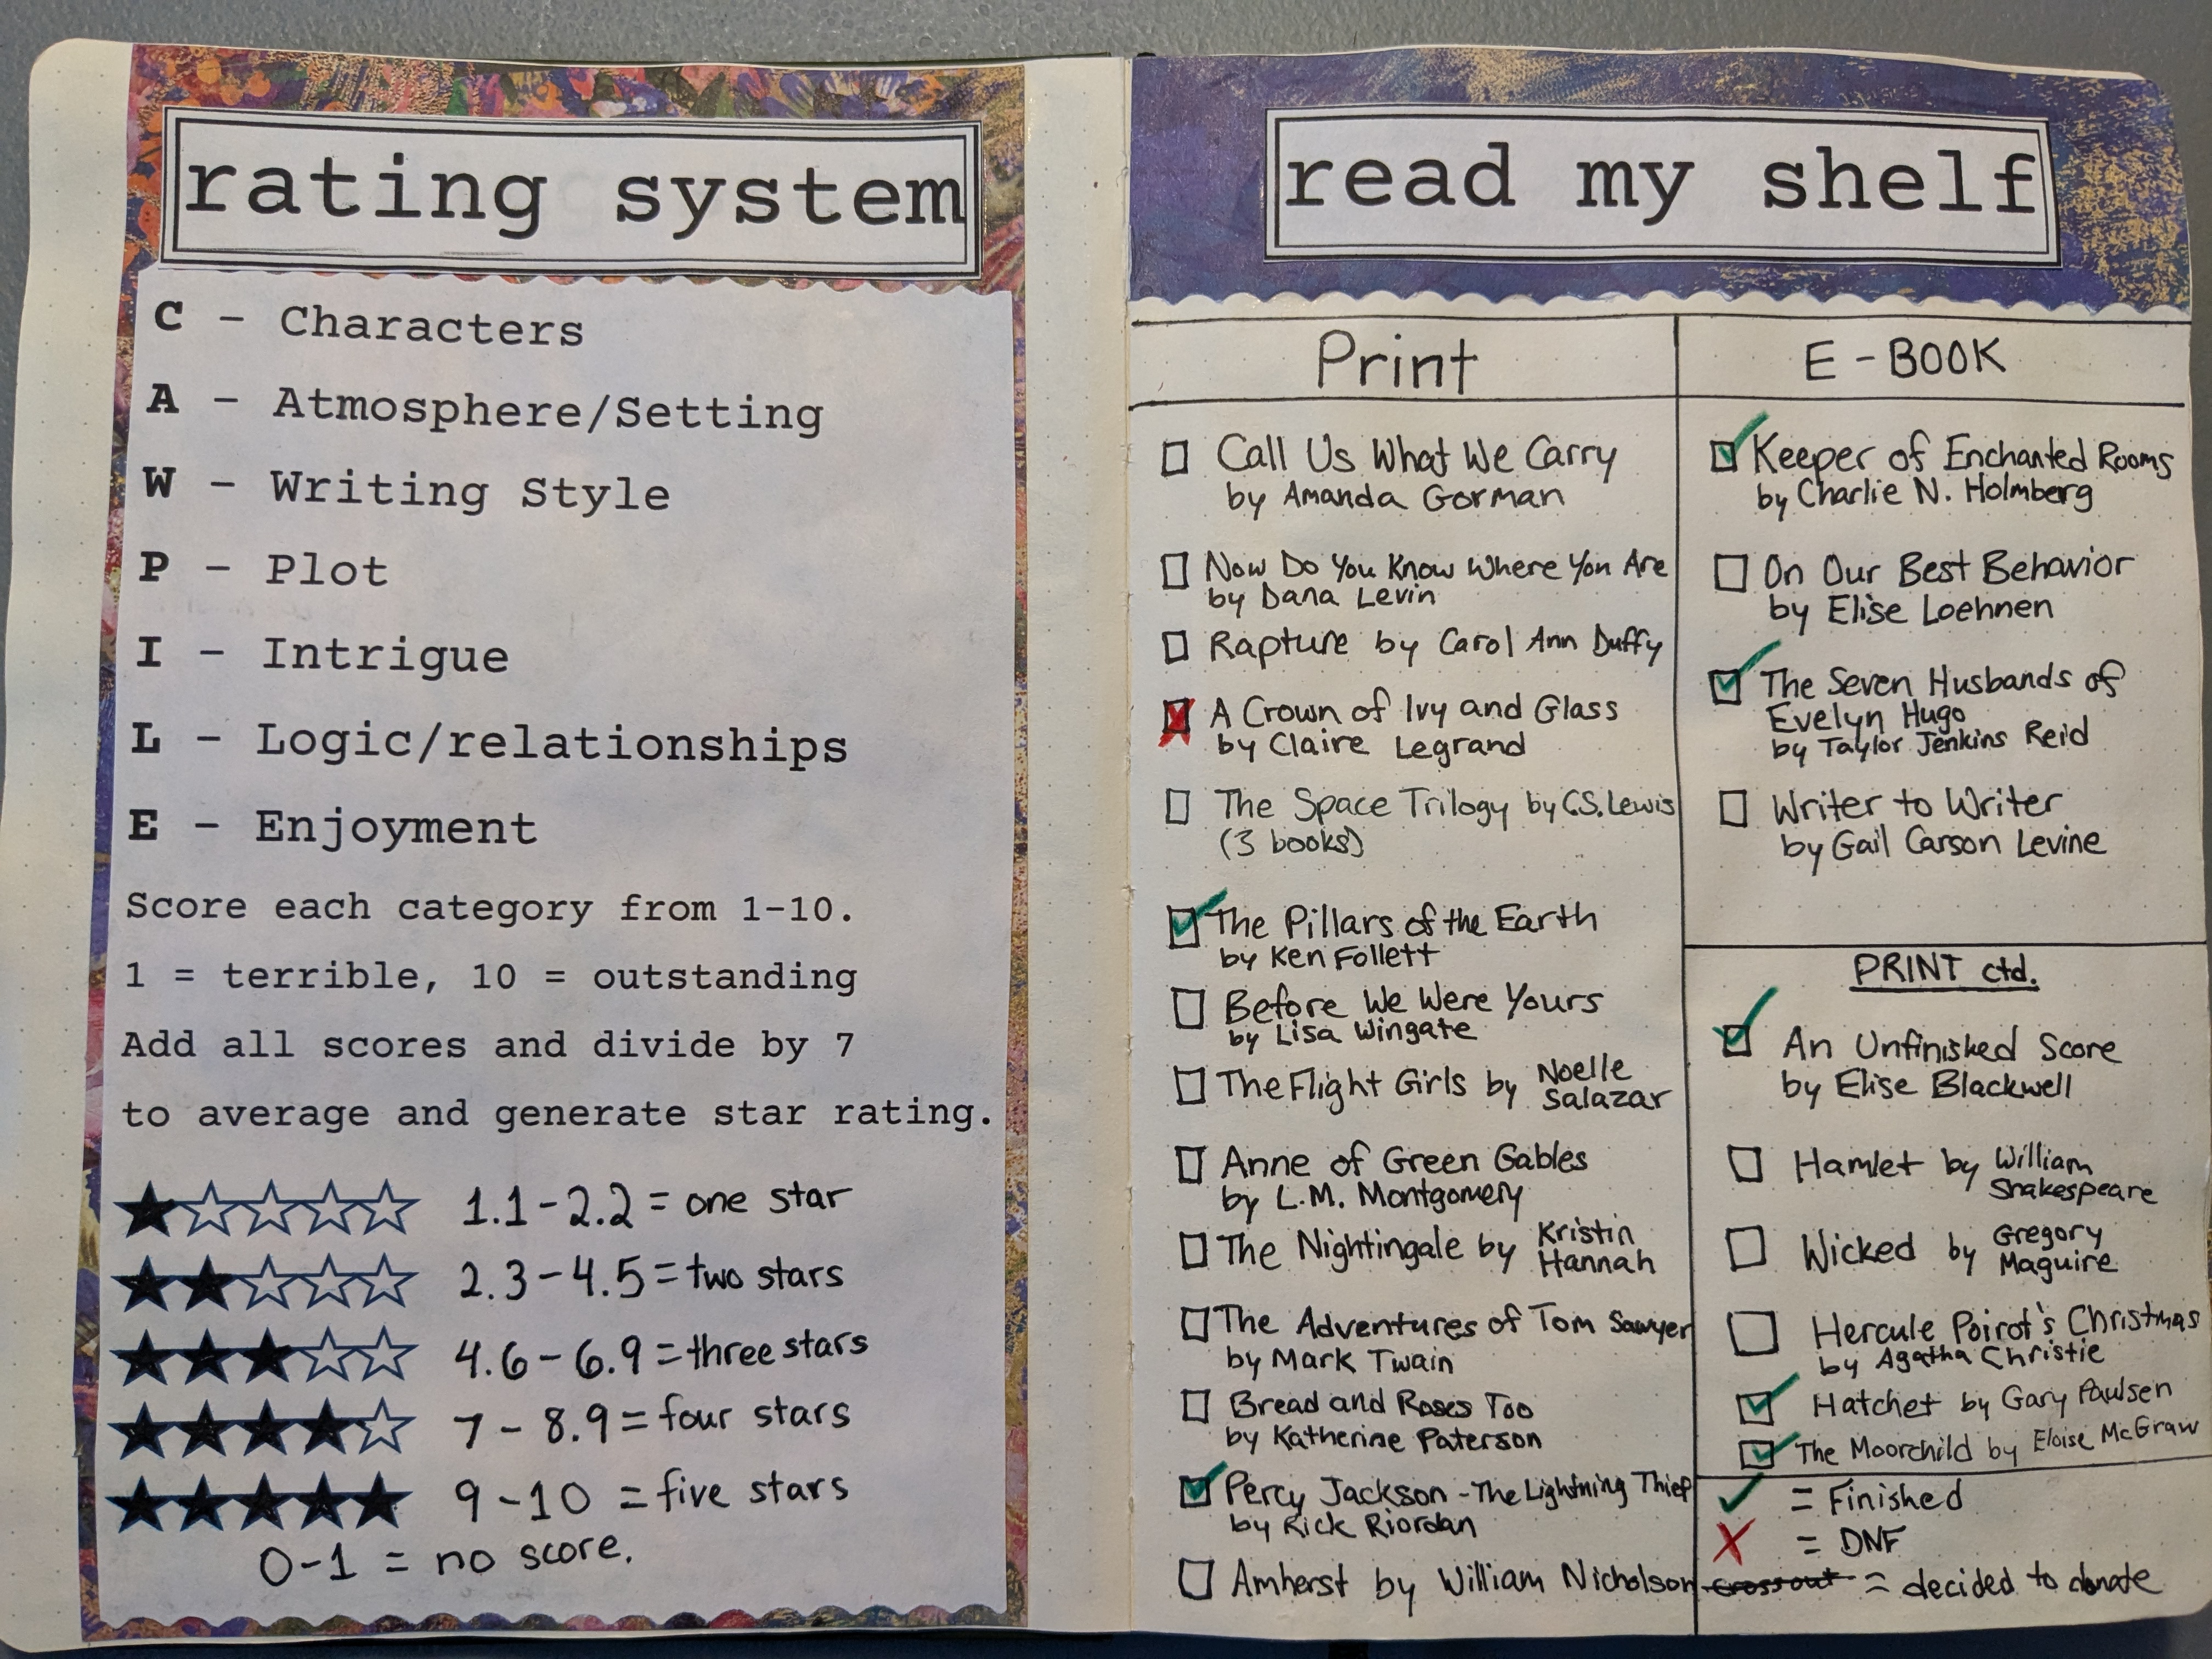 rating system
C - Characters
A - Atmosphere/Setting
W - Writing Style
P - Plot
I - Intrigue
L - Logic/relationships
E - Enjoyment
Score each category from 1-10.
1 = terrible, 10 = outstanding
Add all scores and divide by 7
to average and generate star rating.
1.1-2.2 = one star
2.3-4.5 = two stars
4.6-6.9 = three stars
7-8.9 = four stars
9-10 = five stars
0-1 = no score.
read my shelf
Print
Call Us What We Carry
by Amanda Gorman
Now Do You Know Where You Are
by Dana Levin
Rapture by Carol Ann Duffy
A Crown of Ivy and Glass
by Claire Legrand
The Space Trilogy by C.S. Lewis
(3 books)
The Pillars of the Earth
by Ken Follett
Before We Were Yours
by Lisa Wingate
The Flight Girls by Noelle
Salazar
Anne of Green Gables
by L.M. Montgomery
The Nightingale by Kristin
Hannah
The Adventures of Tom Sawyer
by Mark Twain
Bread and Roses Too
by Katherine Paterson
Percy Jackson - The Lightning Thief
by Rick Riordan
Amherst by William Nicholson
E-BOOK
Keeper of Enchanted Rooms
by Charlie N. Holmberg
On Our Best Behavior
by Elise Loehnen
The Seven Husbands of
Evelyn Hugo
by Taylor Jenkins Reid
Writer to Writer
by Gail Carson Levine
PRINT ctd.
An Unfinished Score
by Elise Blackwell
Hamlet by William
Shakespeare
Wicked by Gregory
Maguire
Hercule Poirot's Christmas
by Agatha Christie
Hatchet by Gary Paulsen
The Moorchild by Eloise McGraw
= Finished
X = DNF
cross out = decided to donate